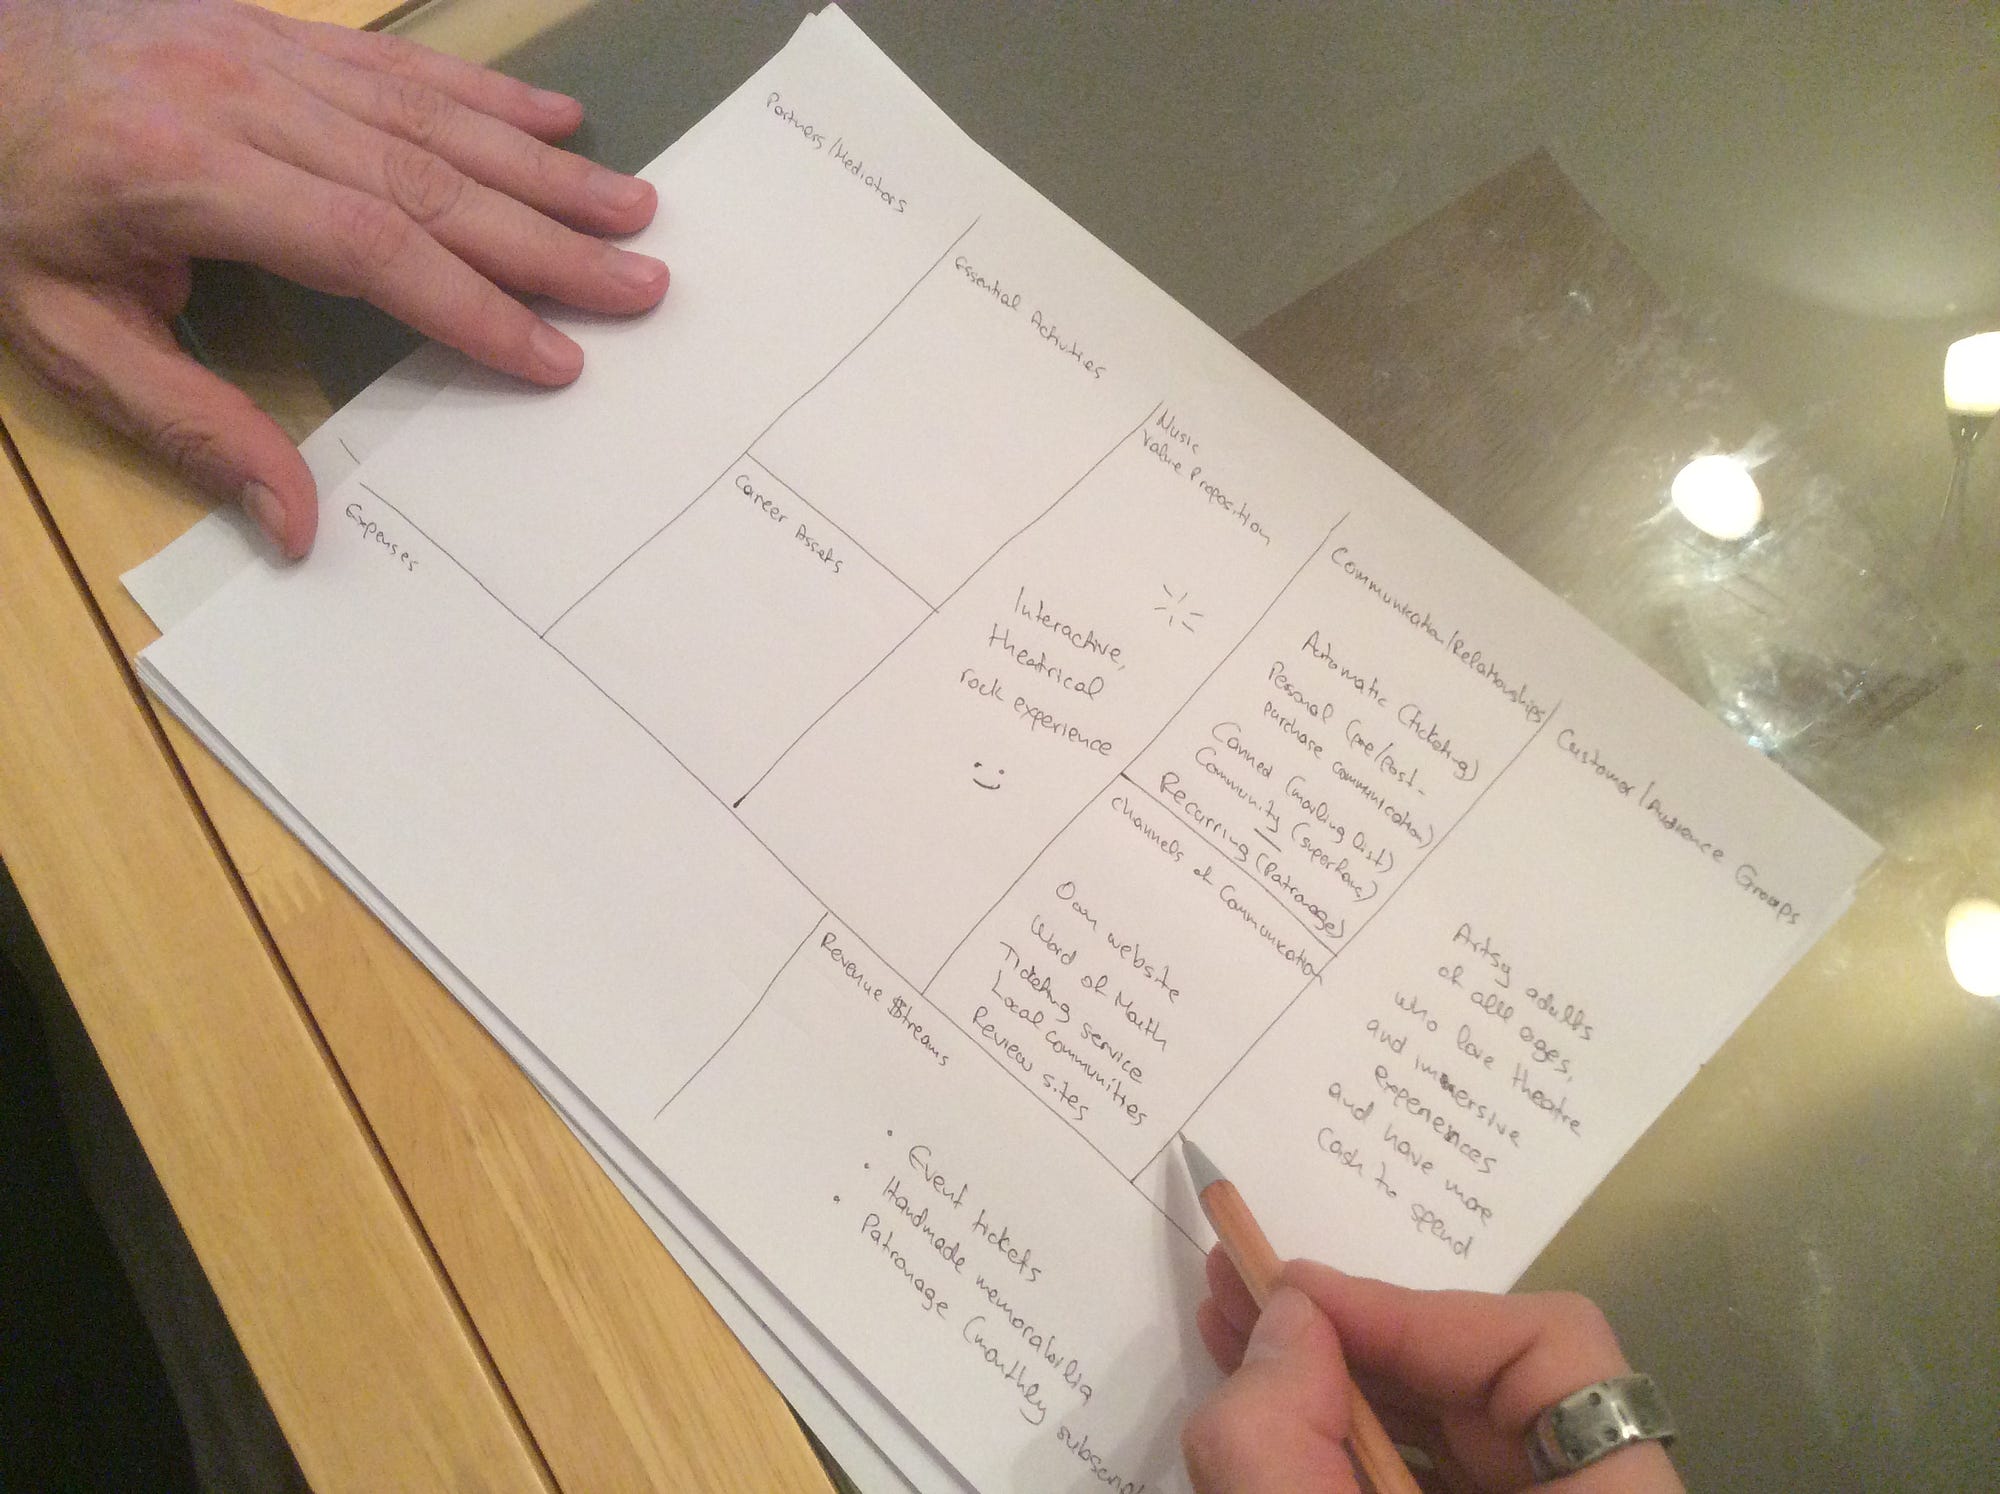 Partners/Mediators
Essential Activities
Career Assets
Music
Value Proposition
Interactive,
theatrical
rock experience
Communication/Relationships
Automatic (ticketing)
Personal (pre/post-
purchase communication)
Canned (mailing list)
Community (superfans)
Recurring (Patronage)
Channels of Communication
Own website
Word of Mouth
Ticketing service
Local communities
Review sites
Customer/Audience Groups
Artsy adults
of all ages,
who love theatre
and immersive
experiences
and have more
cash to spend
Expenses
Revenue $treams
• Event tickets
• Handmade memorabilia
• Patronage (monthly